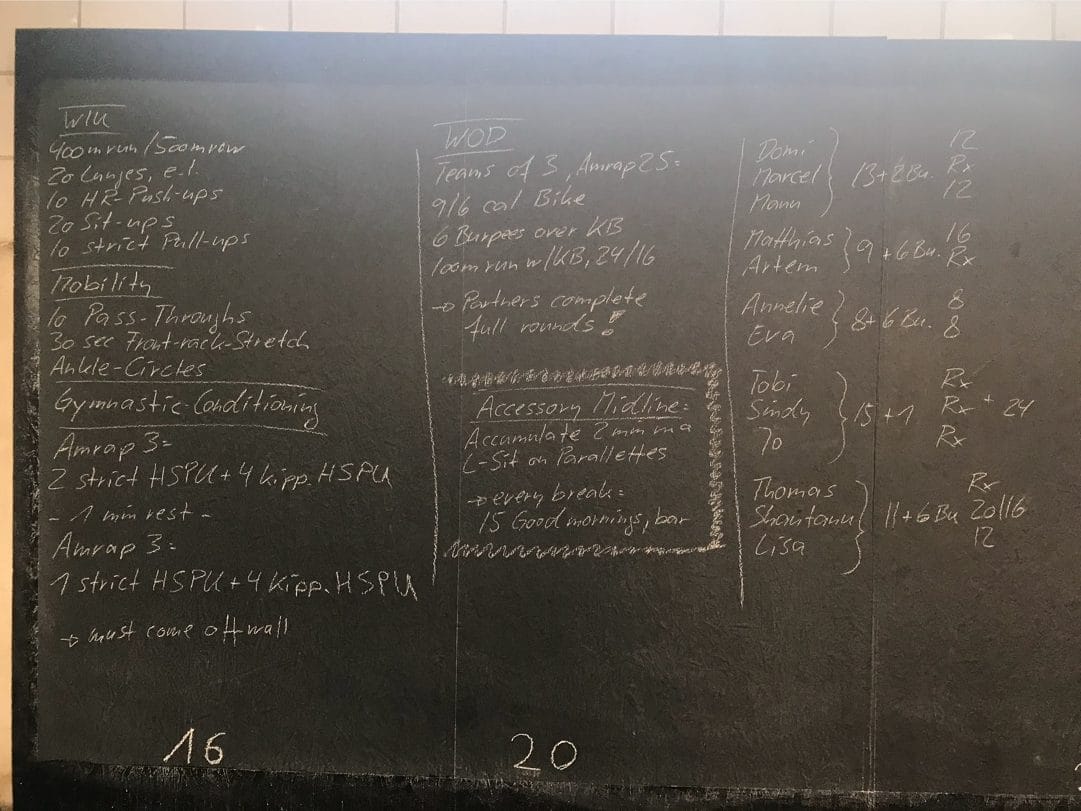 WU
400m run/500m row
20 Lunges, e.l.
10 HR-Push-ups
20 Sit-ups
10 strict Pull-ups
Mobility
10 Pass-Throughs
30 sec Front-rack-Stretch
Ankle-Circles
Gymnastic-Conditioning
Amrap 3:
2 strict HSPU + 4 kipp. HSPU
- 1 min rest -
Amrap 3:
1 strict HSPU + 4 kipp. HSPU
→ must come off wall
16
WOD
Teams of 3, Amrap 25:
9/6 cal Bike
6 Burpees over KB
100m run w/KB, 24/16
→ Partners complete
full rounds!
Accessory Midline:
Accumulate 2 min in a
L-Sit on Parallettes
→ every break:
15 Good mornings, bar
20
Domi 12
Marcel } 13+2Bu. Rx
Manu 12
Matthias } 9+6Bu. 16
Artem Rx
Annelie } 8+6Bu. 8
Eva 8
Tobi Rx
Sindy } 15+1 Rx+ 24
Jo Rx
Thomas Rx
Shantanu } 11+6Bu 20/16
Lisa 12